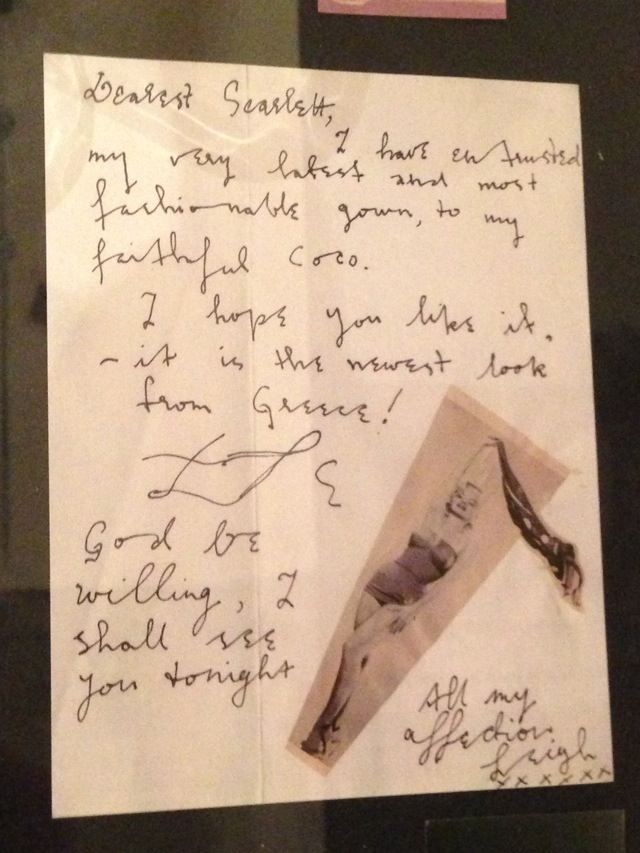 Dearest Scarlett,
I have entrusted
my very latest and most
fashionable gown, to my
faithful Coco.
I hope you like it.
- it is the newest look
from Greece!
God be
willing, I
shall see
you tonight
All my
affection
Leigh
xxxxxx